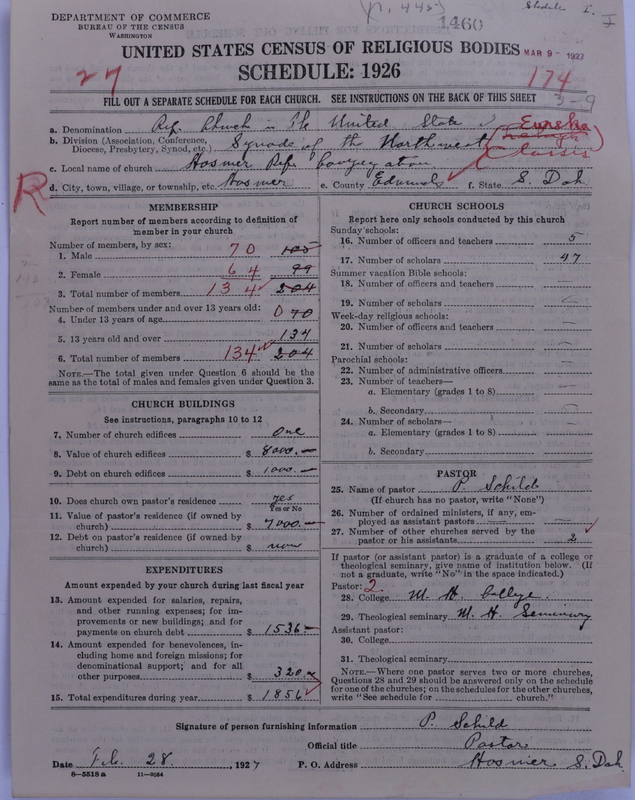 DEPARTMENT OF COMMERCE
BUREAU OF THE CENSUS
WASHINGTON
1460
UNITED STATES CENSUS OF RELIGIOUS BODIES
MAR 9 - 1927
SCHEDULE: 1926
27
174
FILL OUT A SEPARATE SCHEDULE FOR EACH CHURCH. SEE INSTRUCTIONS ON THE BACK OF THIS SHEET
3-9
a. Denomination Ref. Church in the United State
Eureka
b. Division (Association, Conference, Diocese, Presbytery, Synod, etc.) Synode of the Northwest
Classis
c. Local name of church Hosmer Ref. Congregation
R
d. City, town, village, or township, etc. Hosmer e. County Edmunds f. State S. Dak
MEMBERSHIP
Report number of members according to definition of member in your church
Number of members, by sex:
1. Male 70 105
2. Female 64 99
3. Total number of members 134 204
Number of members under and over 13 years old:
4. Under 13 years of age 0 70
5. 13 years old and over 134
6. Total number of members 134 204
NOTE.—The total given under Question 6 should be the same as the total of males and females given under Question 3.
CHURCH BUILDINGS
See instructions, paragraphs 10 to 12
7. Number of church edifices One
8. Value of church edifices $ 8000.—
9. Debt on church edifices $ 1000.—
10. Does church own pastor's residence yes
Yes or No
11. Value of pastor's residence (if owned by church) $ 7000.—
12. Debt on pastor's residence (if owned by church) $ none
EXPENDITURES
Amount expended by your church during last fiscal year
13. Amount expended for salaries, repairs, and other running expenses; for improvements or new buildings; and for payments on church debt $ 1536.—
14. Amount expended for benevolences, including home and foreign missions; for denominational support; and for all other purposes $ 320.—
15. Total expenditures during year $ 1856
CHURCH SCHOOLS
Report here only schools conducted by this church
Sunday schools:
16. Number of officers and teachers 5
17. Number of scholars 47
Summer vacation Bible schools:
18. Number of officers and teachers —
19. Number of scholars —
Week-day religious schools:
20. Number of officers and teachers —
21. Number of scholars —
Parochial schools:
22. Number of administrative officers —
23. Number of teachers—
a. Elementary (grades 1 to 8) —
b. Secondary —
24. Number of scholars—
a. Elementary (grades 1 to 8) —
b. Secondary
PASTOR
25. Name of pastor P. Schild
(If church has no pastor, write "None")
26. Number of ordained ministers, if any, employed as assistant pastors —
27. Number of other churches served by the pastor or his assistants 2
If pastor (or assistant pastor) is a graduate of a college or theological seminary, give name of institution below. (If not a graduate, write "No" in the space indicated.)
Pastor: 2.
28. College M. H. College
29. Theological seminary M. H. Seminary
Assistant pastor:
30. College
31. Theological seminary
NOTE.—Where one pastor serves two or more churches, Questions 28 and 29 should be answered only on the schedule for one of the churches; on the schedules for the other churches, write "See schedule for church."
Signature of person furnishing information P. Schild
Official title Pastor
Date Feb. 28., 1927 P. O. Address Hosmer S. Dak.
8-5518a 11-9034